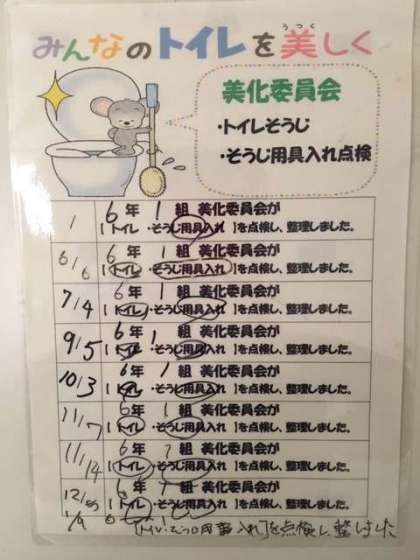 みんなのトイレを美しく
うつく
美化委員会
・トイレそうじ
・そうじ用具入れ点検
1 6年 1組 美化委員会が
【トイレ・そうじ用具入れ】を点検し、整理しました。
6/6 6年 1組 美化委員会が
【トイレ・そうじ用具入れ】を点検し、整理しました。
7/4 6年 1組 美化委員会が
【トイレ・そうじ用具入れ】を点検し、整理しました。
9/5 6年 1組 美化委員会が
【トイレ・そうじ用具入れ】を点検し、整理しました。
10/3 6年 1組 美化委員会が
【トイレ・そうじ用具入れ】を点検し、整理しました。
11/7 6年 1組 美化委員会が
【トイレ・そうじ用具入れ】を点検し、整理しました。
11/14 6年 1組 美化委員会が
【トイレ・そうじ用具入れ】を点検し、整理しました。
12/ 6年 1組 美化委員会が
【トイレ・そうじ用具入れ】を点検し、整理しました。
1/9 入れ]を点検し、整